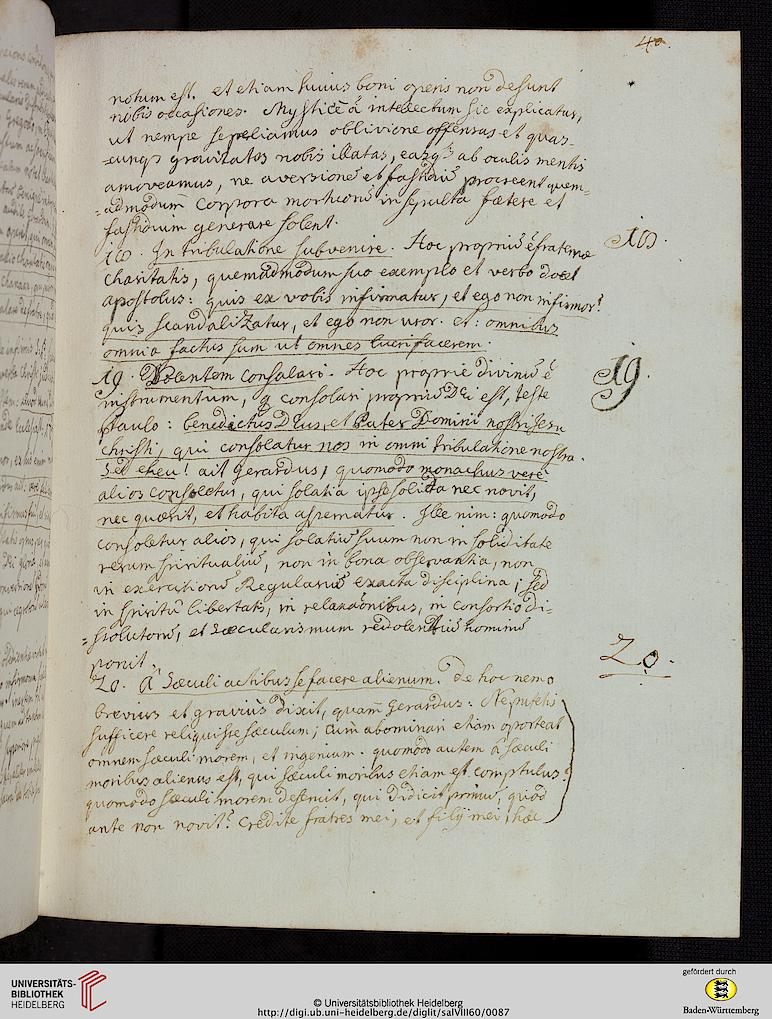 40.
notum est. et etiam huius boni operis non desunt
nobis occasiones. Mysticè ã intellectum sic explicatur,
ut nempe sepeliamus oblivione offensas et quas-
cunq3 gravitates nobis illatas, easq3 ab oculis mentis
amoveamus, ne aversionẽ et fastidiũ procreent quem=
=admodum corpora mortuorũ insepulta fœtere et
fastidium generare solent.
18. In tribulatione subvenire. Hoc propriũ ẽ fraternæ
charitatis, quemadmodum suo exemplo et verbo docet
apostolus: quis ex vobis infirmatur, et ego non infirmor?
quis scandalizatur, et ego non uror. et: omnibus
omnia factus sum ut omnes lucrifacerem.
19. Dolentem consolari. Hoc proprie divinũ ẽ
instrumentum, q consolari propriũ Dei est, teste
Paulo: benedictus Deus, et Pater Domini nostri Jesu
Christi, qui consolatur nos in omni tribulatione nostra.
Sed eheu! ait Gerardus, quomodo monachus verè
alios consoletur, qui solatia ipse solida nec novit,
nec quærit, et habita aspernatur. Ille nim: quomodo
consoletur alios, qui solatiũ suum non in soliditate
rerum spiritualiũ, non in bona observantia, non
in exercitionẽ Regularis exacta disciplina; sed
in spiritu libertatis, in relaxaõnibus, in consortio di-
=ssolutorũ, et sæcularismum redolentiũ hominũ
ponit.
20. A Sæculi actibus se facere alienum. De hoc nemo
brevius et gravius dixit, quam Gerardus: Ne putetis
sufficere reliquisse sæculum; cum abominari etiam oporteat
omnem sæculi morem, et ingenium. quomodo autem à sæculi
moribus alienus est, qui sæculi moribus etiam est comptulus?
quomodo sæculi morem deseruit, qui didicit primũ, quod
ante non novit? credite fratres mei, et filij mei, hæc
18.
19.
20.
UNIVERSITÄTS-
BIBLIOTHEK
HEIDELBERG
© Universitätsbibliothek Heidelberg
http://digi.ub.uni-heidelberg.de/diglit/salVIII60/0087
gefördert durch
Baden-Württemberg